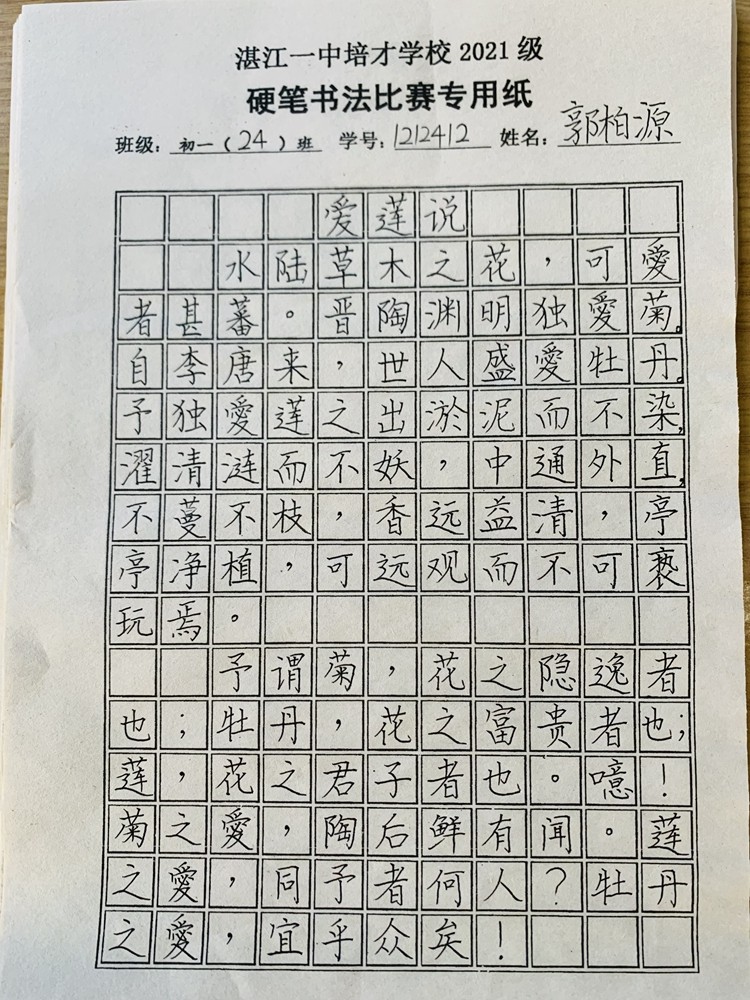 湛江一中培才学校 2021 级
硬笔书法比赛专用纸
班级：初一（24）班 学号：1212412 姓名：郭柏源
爱莲说
水陆草木之花，可愛
者甚蕃。晋陶渊明独愛菊。
自李唐来，世人盛愛牡丹。
予独愛莲之出淤泥而不染，
濯清涟而不妖，中通外直，
不蔓不枝，香远益清，亭
亭净植，可远观而不可亵
玩焉。
予谓菊，花之隐逸者
也；牡丹，花之富贵者也；
莲，花之君子者也。噫！
菊之愛，陶后鲜有闻。莲
之愛，同予者何人？牡丹
之愛，宜乎众矣！